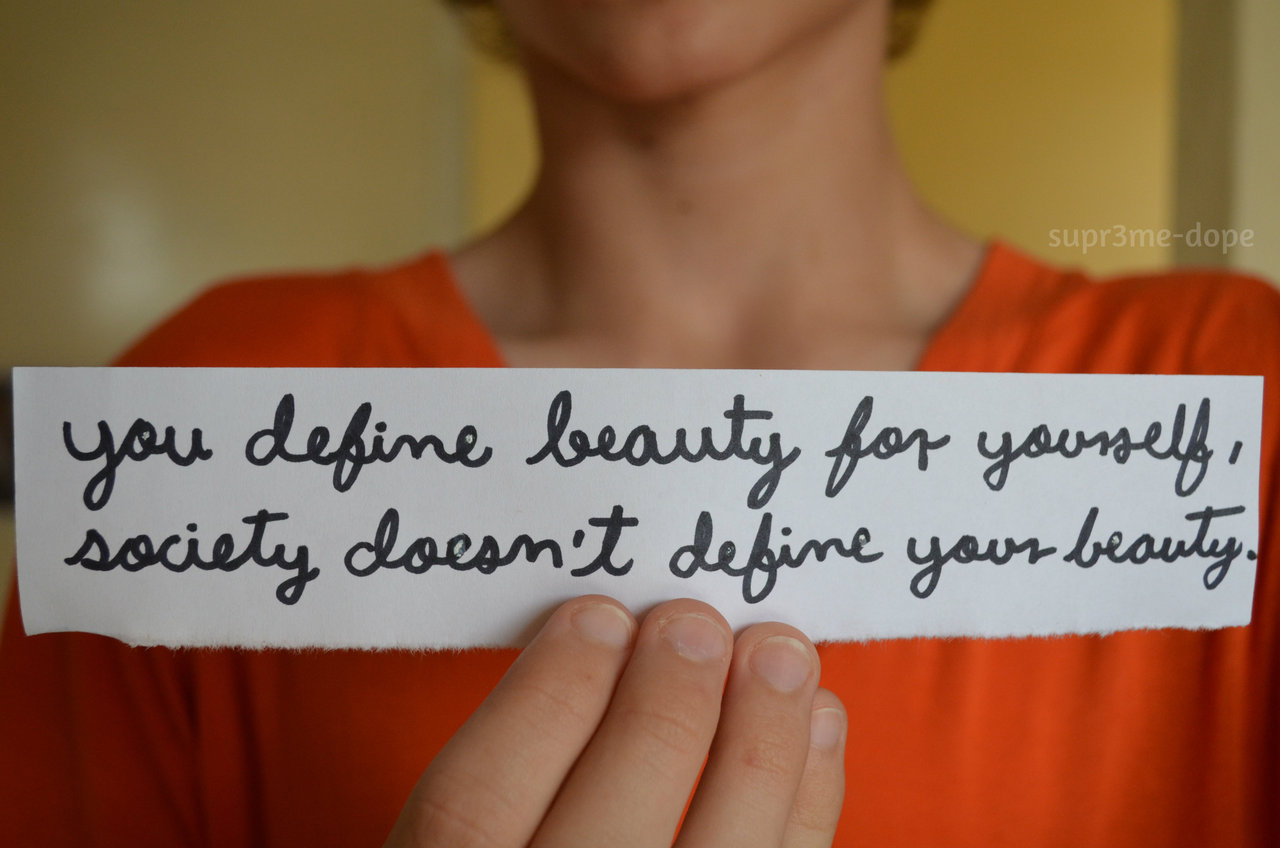 supr3me-dope
you define beauty for yourself,
society doesn't define your beauty.